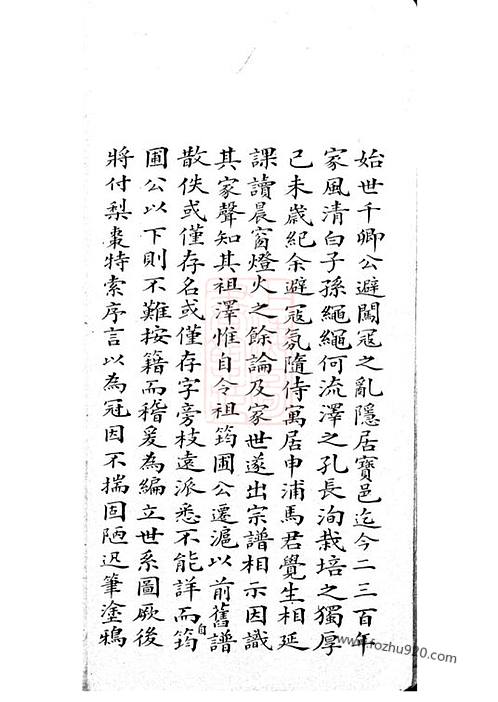 始世千卿公避闖寇之亂隱居寶邑迄今二三百年
家風清白子孫繩繩何流澤之孔長洵栽培之獨厚
己未歲紀余避寇氛隨侍寓居申浦馬君覺生相延
課讀晨窗燈火之餘論及家世遂出宗譜相示因識
其家聲知其祖澤惟自令祖筠圃公遷滬以前舊譜
散佚或僅存名或僅存字旁枝遠派悉不能詳而自筠
圃公以下則不難按籍而稽爰為編立世系圖厥後
將付梨棗特索序言以為冠因不揣固陋迅筆塗鴉
www.fozhu920.com